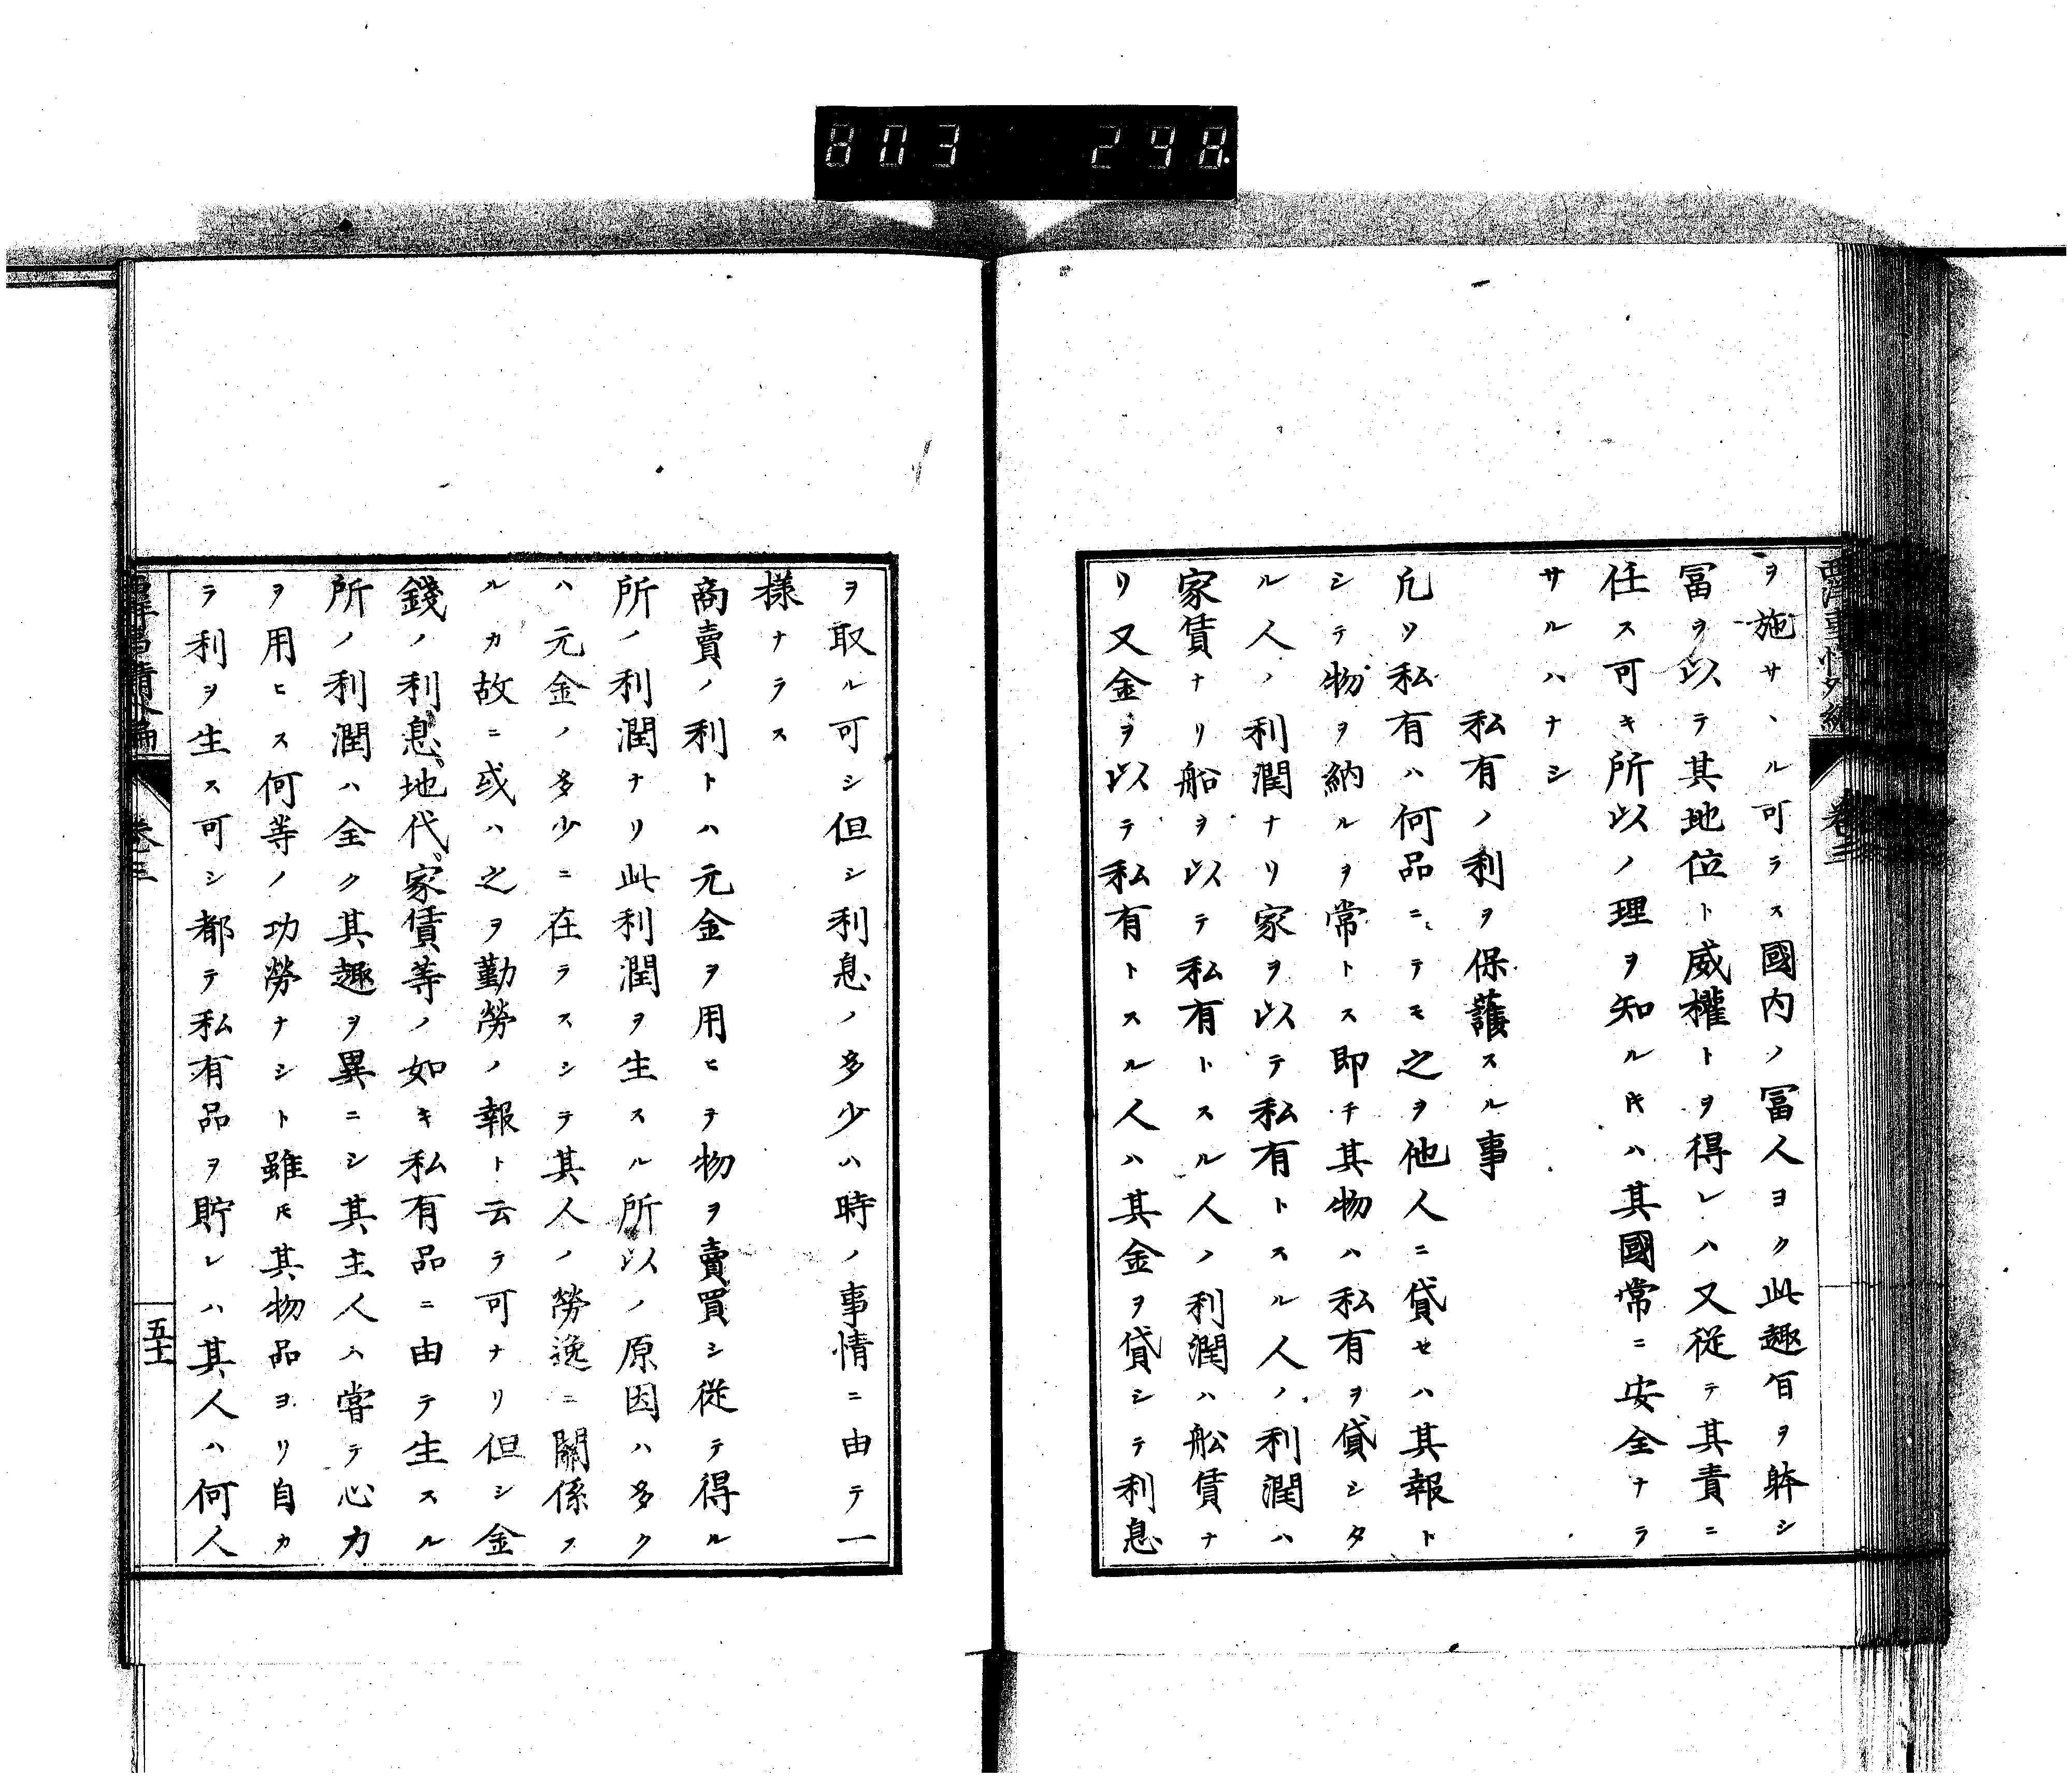 803 298
西洋事情外編
卷三
ヲ施サヽル可ラス國内ノ冨人ヨク此趣㫖ヲ躰シ
冨ヲ以テ其地位ト威權トヲ得レハ又從テ其責ニ
任ス可キ所以ノ理ヲ知ル𪜈ハ其國常ニ安全ナラ
サルハナシ
私有ノ利ヲ保護スル事
凡ソ私有ハ何品ニテモ之ヲ他人ニ貸セハ其報ト
シテ物ヲ納ルヲ常トス即チ其物ハ私有ヲ貸シタ
ル人ノ利潤ナリ家ヲ以テ私有トスル人ノ利潤ハ
家賃ナリ船ヲ以テ私有トスル人ノ利潤ハ舩賃ナ
リ又金ヲ以テ私有トスル人ハ其金ヲ貸シテ利息
ヲ取ル可シ但シ利息ノ多少ハ時ノ事情ニ由テ一
樣ナラス
商賣ノ利トハ元金ヲ用ヒテ物ヲ賣買シ從テ得ル
所ノ利潤ナリ此利潤ヲ生スル所以ノ原因ハ多ク
ハ元金ノ多少ニ在ラスシテ其人ノ勞逸ニ關係ス
ルカ故ニ或ハ之ヲ勤勞ノ報ト云テ可ナリ但シ金
錢ノ利息地代家賃等ノ如キ私有品ニ由テ生スル
所ノ利潤ハ全ク其趣ヲ異ニシ其主人ハ嘗テ心力
ヲ用ヒス何等ノ功勞ナシト雖𪜈其物品ヨリ自カ
ラ利ヲ生ス可シ都テ私有品ヲ貯レハ其人ハ何人
西洋事情外編
卷三
五十一